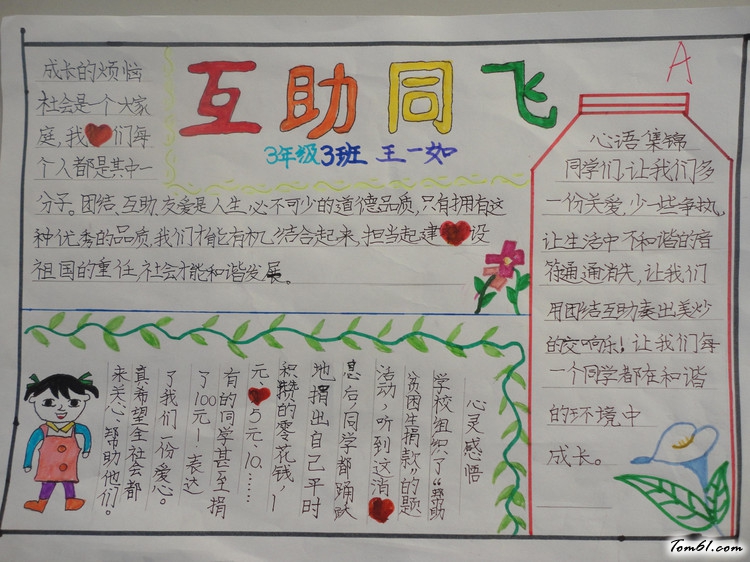 互助同飞
3年级3班 王一如
A
成长的烦恼
社会是一个大家
庭,我们每
个人都是其中一
分子。团结、互助、友爱是人生必不可少的道德品质,只有拥有这
种优秀的品质,我们才能有机结合起来,担当起建设
祖国的重任,社会才能和谐发展。
心语集锦
同学们,让我们多
一份关爱,少一些争执,
让生活中不和谐的音
符通通消失,让我们
用团结互助奏出美妙
的交响乐!让我们每
一个同学都在和谐
的环境中
成长。
心灵感悟
学校组织了“帮助
贫困生捐款”的题
活动,听到这消
息后,同学都踊跃
地捐出自己平时
积攒的零花钱,1
元、5元、10……
有的同学甚至捐
了100元!表达
了我们一份爱心。
真希望全社会都
来关心、帮助他们。
Tom61.com